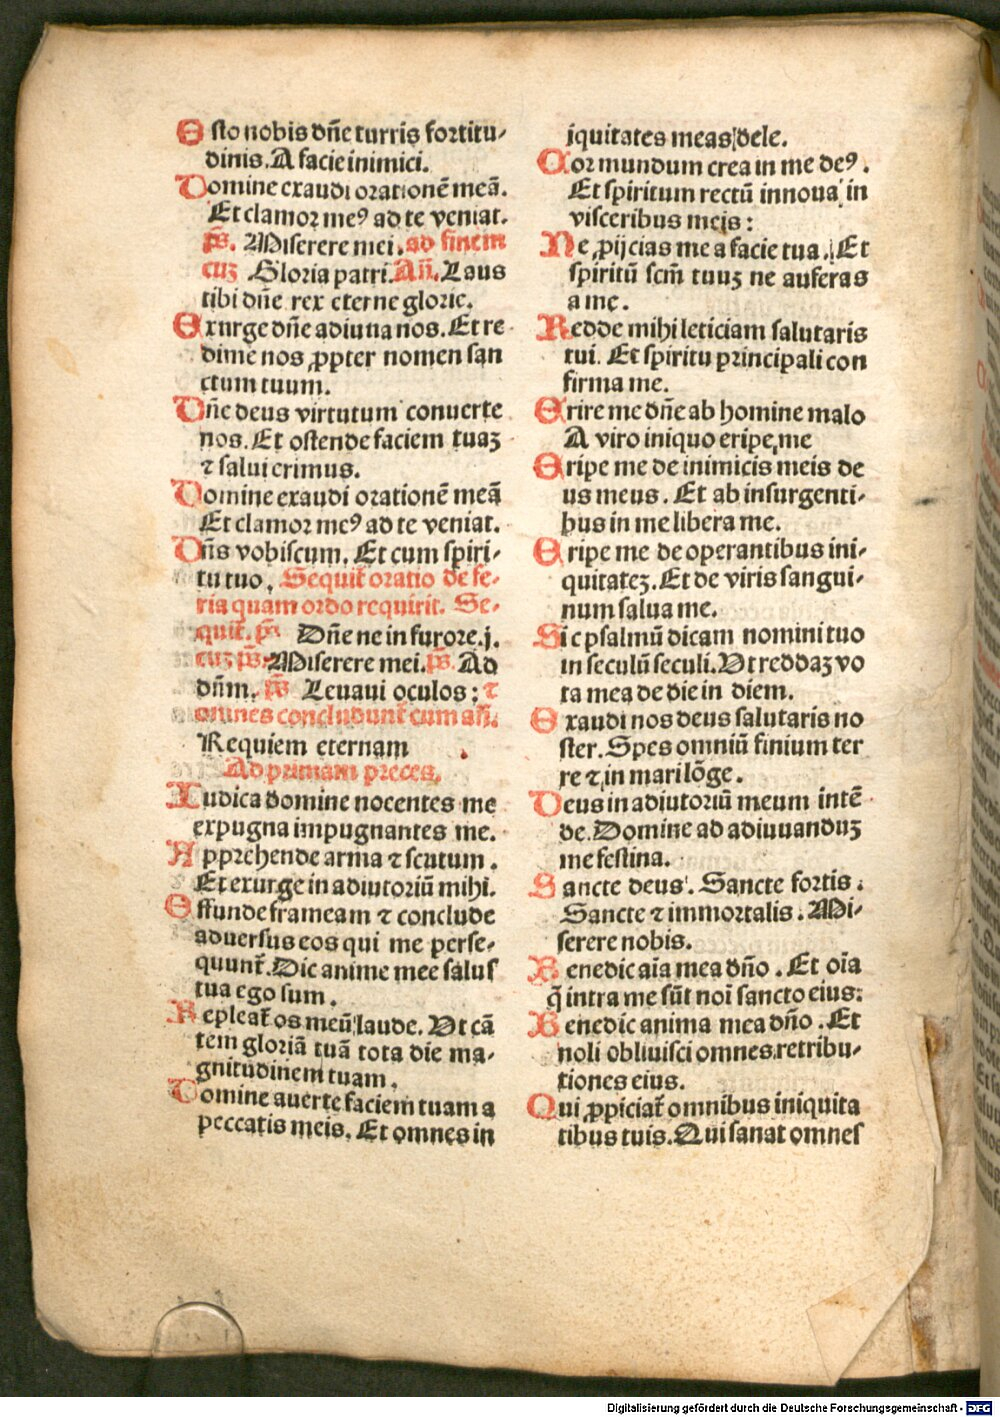 Esto nobis dñe turris fortitu-
dinis. A facie inimici.
Domine exaudi orationē meā.
Et clamor meꝰ ad te veniat.
p̄s. Miserere mei. ad finem
cuꝫ Gloria patri. Añ. Laus
tibi dñe rex eterne glorie.
Exurge dñe adiuua nos. Et re
dime nos ꝓpter nomen san
ctum tuum.
Dñe deus virtutum conuerte
nos. Et ostende faciem tuaꝫ
⁊ salui erimus.
Domine exaudi orationē meā
Et clamor meꝰ ad te veniat.
Dñs vobiscum. Et cum spiri-
tu tuo. Sequit᷑ oratio de fe-
ria quam ordo requirit. Se-
quit᷑. p̄s Dñe ne in furore. j.
cuꝫ p̄s. Miserere mei. p̄s. Ad
dñm. p̄s Leuaui oculos: ⁊
omnes concludunt᷑ cum añ.
Requiem eternam
Ad primam preces.
Iudica domine nocentes me
expugna impugnantes me.
Apprehende arma ⁊ scutum.
Et exurge in adiutoriū mihi.
Effunde frameam ⁊ conclude
aduersus eos qui me perse-
quunt᷑. Dic anime mee salus
tua ego sum.
Repleat᷑ os meū laude. Ut cā
tem gloriā tuā tota die ma-
gnitudinem tuam.
Domine auerte faciem tuam a
peccatis meis. Et omnes in
iquitates meas dele.
Cor mundum crea in me deꝰ.
Et spiritum rectū innoua in
visceribus meis:
Ne ꝓijcias me a facie tua. Et
spiritū scm̄ tuuꝫ ne auferas
a me.
Redde mihi leticiam salutaris
tui. Et spiritu principali con
firma me.
Erire me dñe ab homine malo
A viro iniquo eripe me
Eripe me de inimicis meis de
us meus. Et ab insurgenti-
bus in me libera me.
Eripe me de operantibus ini-
quitateꝫ. Et de viris sangui-
num salua me.
Sic psalmū dicam nomini tuo
in seculū seculi. Ut reddaꝫ vo
ta mea de die in diem.
Exaudi nos deus salutaris no
ster. Spes omniū finium ter
re ⁊ in mari lōge.
Deus in adiutoriū meum intē
de. Domine ad adiuuanduꝫ
me festina.
Sancte deus. Sancte fortis.
Sancte ⁊ immortalis. Mi-
serere nobis.
Benedic aīa mea dño. Et oīa
q̄ intra me sūt noī sancto eius:
Benedic anima mea dño. Et
noli obliuisci omnes retribu-
tiones eius.
Qui ꝓpiciat᷑ omnibus iniquita
tibus tuis. Qui sanat omnes
Digitalisierung gefördert durch die Deutsche Forschungsgemeinschaft - DFG